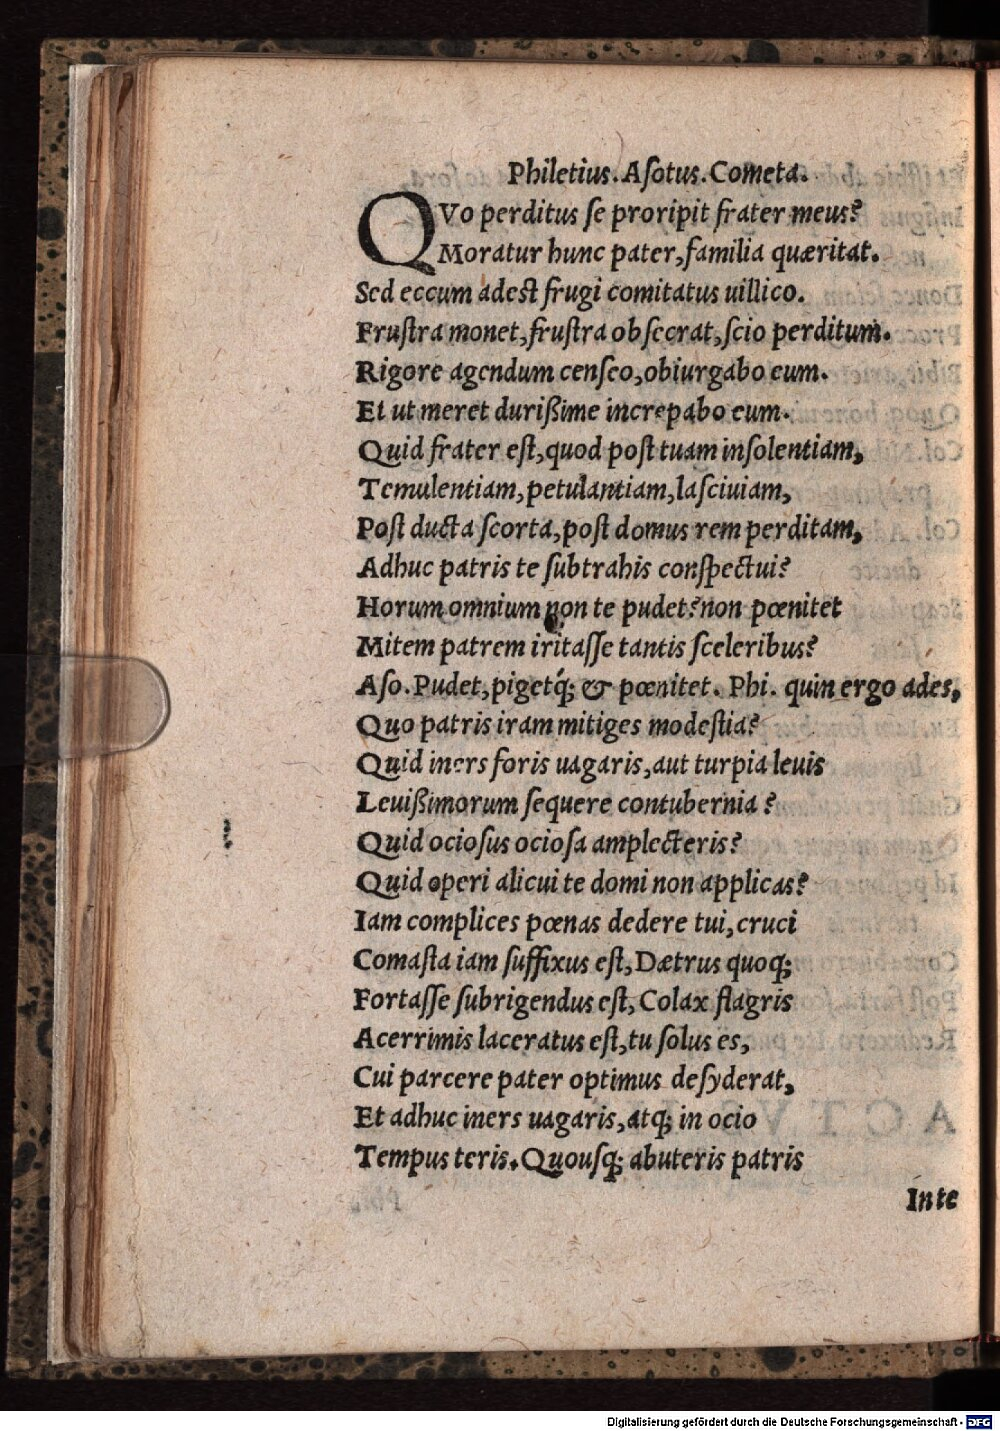 Philetius. Aſotus. Cometa.
QVo perditus ſe proripit frater meus?
Moratur hunc pater, familia quæritat.
Sed eccum adeſt frugi comitatus uillico.
Fruſtra monet, fruſtra obſecrat, ſcio perditum.
Rigore agendum cenſeo, obiurgabo eum.
Et ut meret durißime increpabo eum.
Quid frater eſt, quod poſt tuam inſolentiam,
Temulentiam, petulantiam, laſciuiam,
Poſt ducta ſcorta, poſt domus rem perditam,
Adhuc patris te ſubtrahis conſpectui?
Horum omnium non te pudet? non pœnitet
Mitem patrem iritaſſe tantis ſceleribus?
Aſo. Pudet, pigetq́; & pœnitet. Phi. quin ergo ades,
Quo patris iram mitiges modeſtia?
Quid iners foris uagaris, aut turpia leuis
Leuißimorum ſequere contubernia?
Quid ocioſus ocioſa amplecteris?
Quid operi alicui te domi non applicas?
Iam complices pœnas dedere tui, cruci
Comaſta iam ſuffixus eſt, Dætrus quoq;
Fortaſſe ſubrigendus eſt, Colax flagris
Acerrimis laceratus eſt, tu ſolus es,
Cui parcere pater optimus deſyderat,
Et adhuc iners uagaris, atq; in ocio
Tempus teris. Quouſq; abuteris patris
Inte
Digitalisierung gefördert durch die Deutsche Forschungsgemeinschaft - DFG